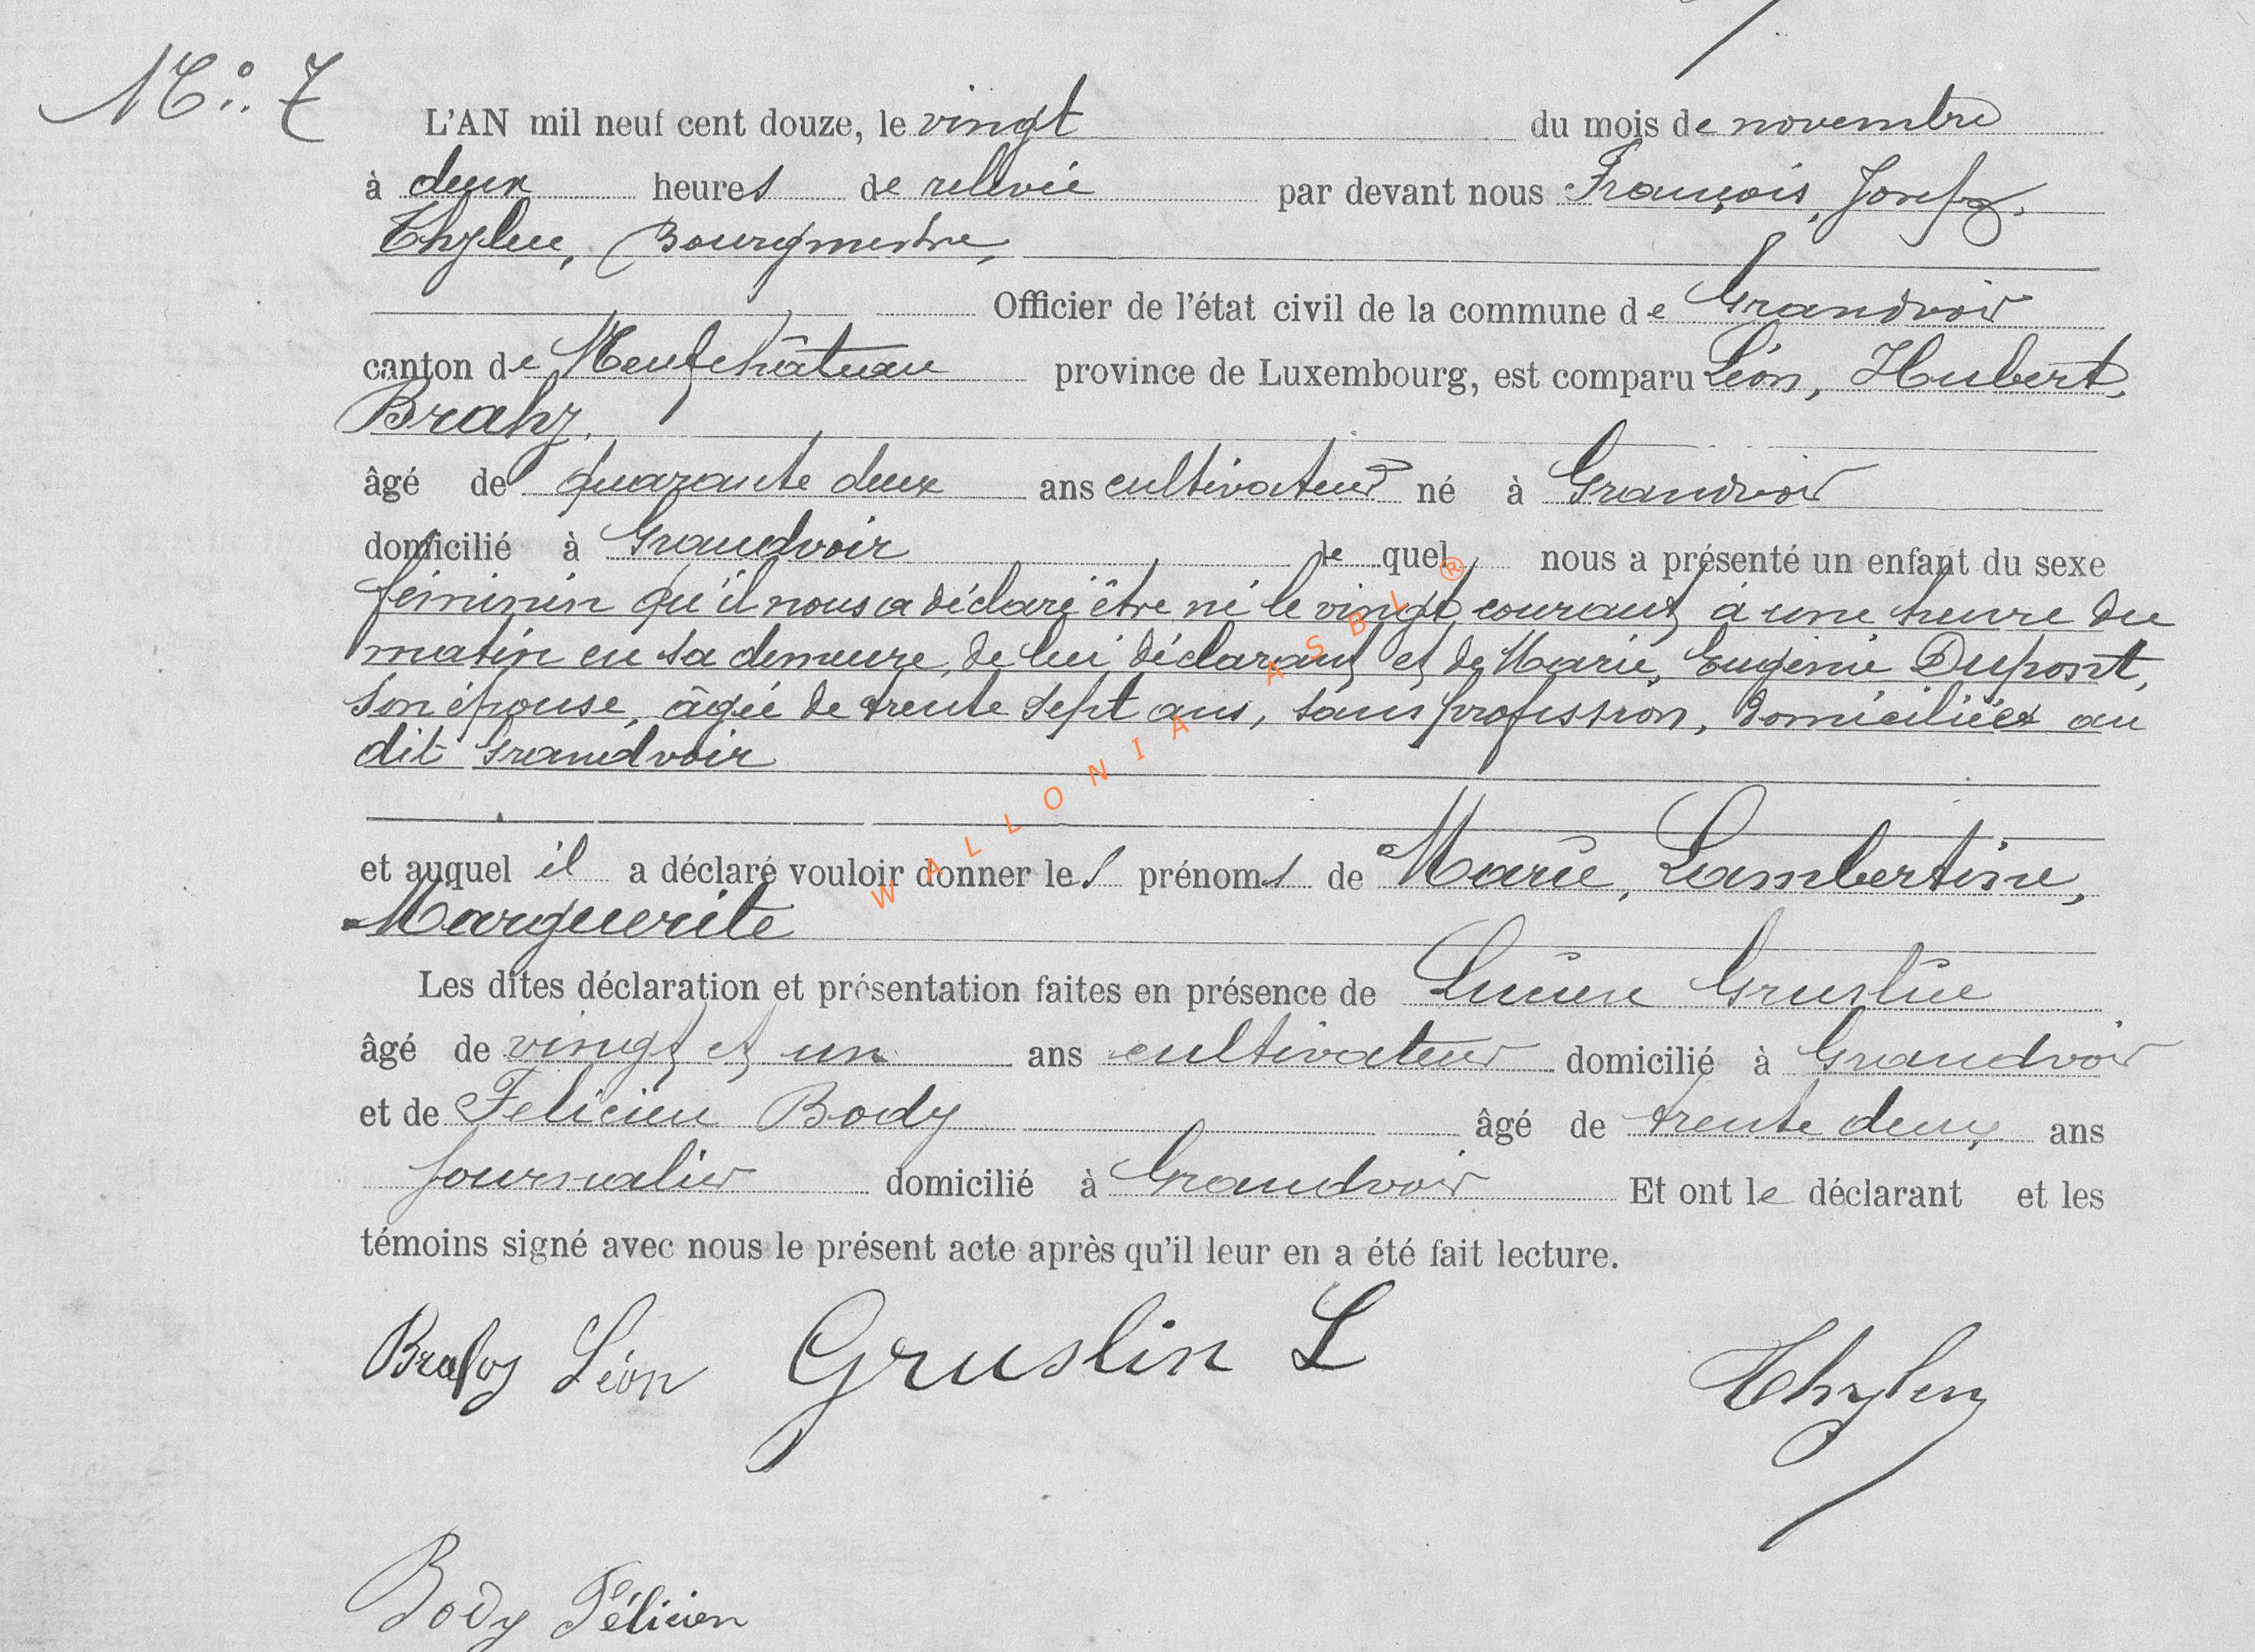 N° 7
L'AN mil neuf cent douze, le vingt du mois de novembre
à deux heures de relevée par devant nous François, Joseph,
Thylen, Bourgmestre,
Officier de l'état civil de la commune de Grandvoir
canton de Neufchâteau province de Luxembourg, est comparu Léon, Hubert,
Brahy.
âgé de quarante deux ans cultivateur né à Grandvoir
domicilié à Grandvoir le quel nous a présenté un enfant du sexe
féminin qu'il nous a déclaré être né le vingt courant à une heure du
matin en sa demeure, de lui déclarant et de Marie, Eugénie Dupont,
son épouse, âgée de trente sept ans, sans profession, domiciliées au
dit Grandvoir
et auquel il a déclaré vouloir donner les prénoms de Marie, Lambertine,
Marguerite
Les dites déclaration et présentation faites en présence de Lucien Gruslin
âgé de vingt et un ans cultivateur domicilié à Grandvoir
et de Felicien Body âgé de trente deux ans
journalier domicilié à Grandvoir Et ont le déclarant et les
témoins signé avec nous le présent acte après qu'il leur en a été fait lecture.
Brahy Léon Gruslin L Thylen
Body Félicien
WALLONIA ASBL ®